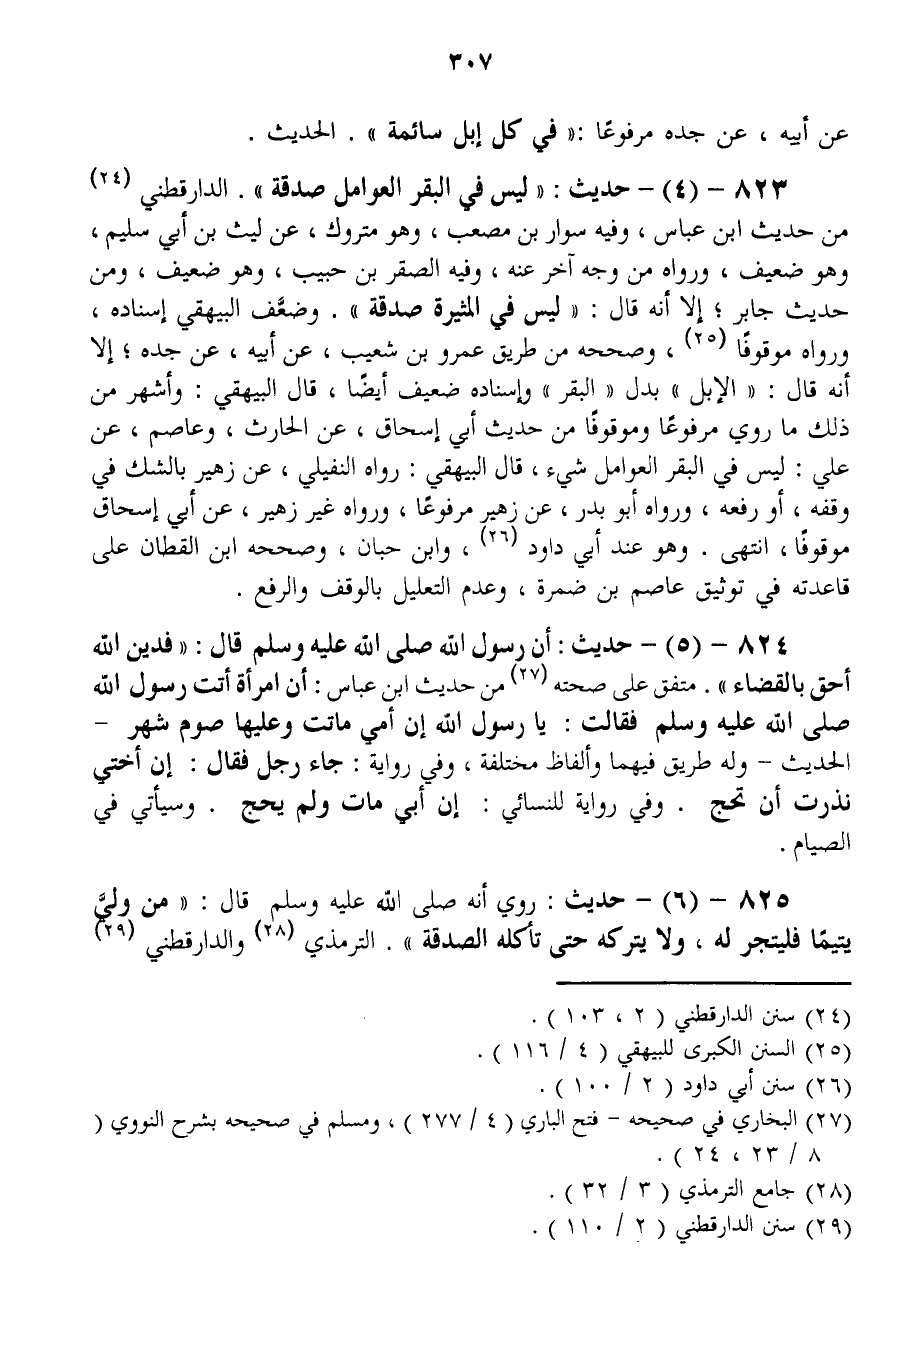 ٣٠٧
عن أبيه ، عن جده مرفوعًا :« في كل إبل سائمة » . الحديث .
٨٢٣ – (٤) – حديث : « ليس في البقر العوامل صدقة » . الدارقطني (٢٤)
من حديث ابن عباس ، وفيه سوار بن مصعب ، وهو متروك ، عن ليث بن أبي سليم ،
وهو ضعيف ، ورواه من وجه آخر عنه ، وفيه الصقر بن حبيب ، وهو ضعيف ، ومن
حديث جابر ؛ إلا أنه قال : « ليس في المثيرة صدقة » . وضعَّف البيهقي إسناده ،
ورواه موقوفًا (٢٥) ، وصححه من طريق عمرو بن شعيب ، عن أبيه ، عن جده ؛ إلا
أنه قال : « الإبل » بدل « البقر » وإسناده ضعيف أيضًا ، قال البيهقي : وأشهر من
ذلك ما روي مرفوعًا وموقوفًا من حديث أبي إسحاق ، عن الحارث ، وعاصم ، عن
علي : ليس في البقر العوامل شيء ، قال البيهقي : رواه النفيلي ، عن زهير بالشك في
وقفه ، أو رفعه ، ورواه أبو بدر ، عن زهير مرفوعًا ، ورواه غير زهير ، عن أبي إسحاق
موقوفًا ، انتهى . وهو عند أبي داود (٢٦) ، وابن حبان ، وصححه ابن القطان على
قاعدته في توثيق عاصم بن ضمرة ، وعدم التعليل بالوقف والرفع .
٨٢٤ – (٥) – حديث : أن رسول الله صلى الله عليه وسلم قال : « فدين الله
أحق بالقضاء » . متفق على صحته (٢٧) من حديث ابن عباس : أن امرأة أتت رسول الله
صلى الله عليه وسلم فقالت : يا رسول الله إن أمي ماتت وعليها صوم شهر –
الحديث – وله طريق فيهما وألفاظ مختلفة ، وفي رواية : جاء رجل فقال : إن أختي
نذرت أن تحج . وفي رواية للنسائي : إن أبي مات ولم يحج . وسيأتي في
الصيام .
٨٢٥ – (٦) – حديث : روي أنه صلى الله عليه وسلم قال : « من وليَّ
يتيمًا فليتجر له ، ولا يتركه حتى تأكله الصدقة » . الترمذي (٢٨) والدارقطني (٢٩)
(٢٤) سنن الدارقطني ( ٢ ، ١٠٣ ) .
(٢٥) السنن الكبرى للبيهقي ( ٤ / ١١٦ ) .
(٢٦) سنن أبي داود ( ٢ / ١٠٠ ) .
(٢٧) البخاري في صحيحه – فتح الباري ( ٤ / ٢٧٧ ) ، ومسلم في صحيحه بشرح النووي (
٨ / ٢٣ ، ٢٤ ) .
(٢٨) جامع الترمذي ( ٣ / ٣٢ ) .
(٢٩) سنن الدارقطني ( ٢ / ١١٠ ) .